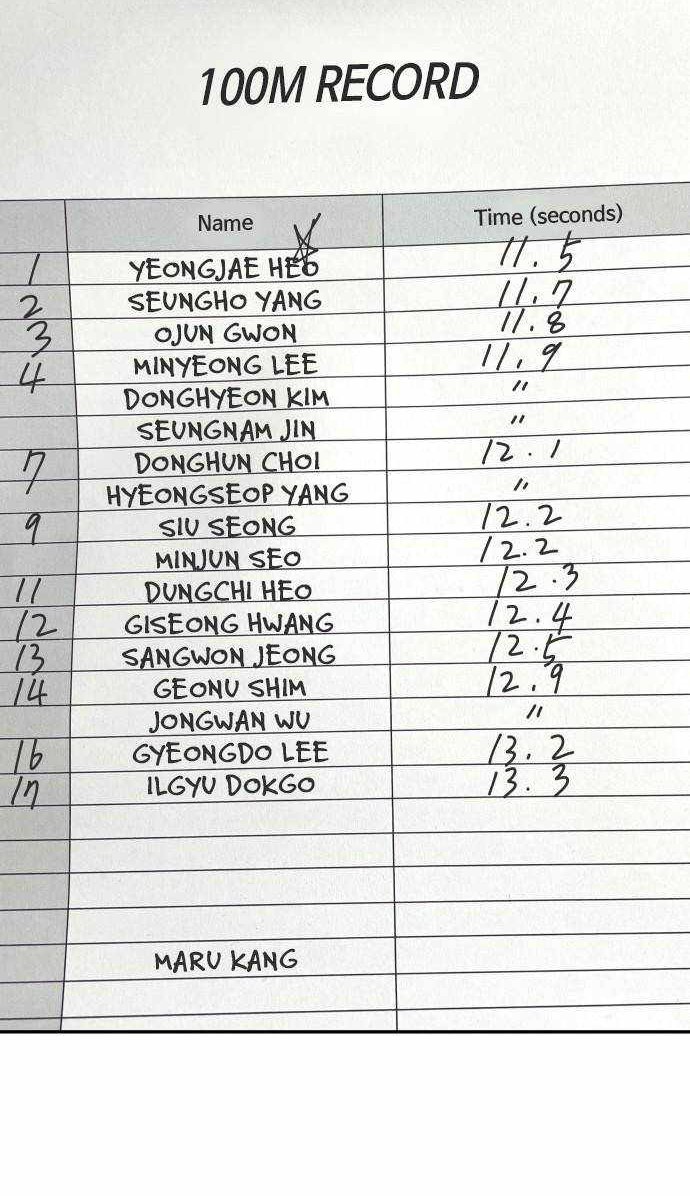 100M RECORD
Name Time (seconds)
1 YEONGJAE HEO 11.5
2 SEUNGHO YANG 11.7
3 OJUN GWON 11.8
4 MINYEONG LEE 11.9
DONGHYEON KIM "
SEUNGNAM JIN "
7 DONGHUN CHOI 12.1
HYEONGSEOP YANG "
9 SIU SEONG 12.2
MINJUN SEO 12.2
11 DUNGCHI HEO 12.3
12 GISEONG HWANG 12.4
13 SANGWON JEONG 12.5
14 GEONU SHIM 12.9
JONGWAN WU "
16 GYEONGDO LEE 13.2
17 ILGYU DOKGO 13.3
MARU KANG